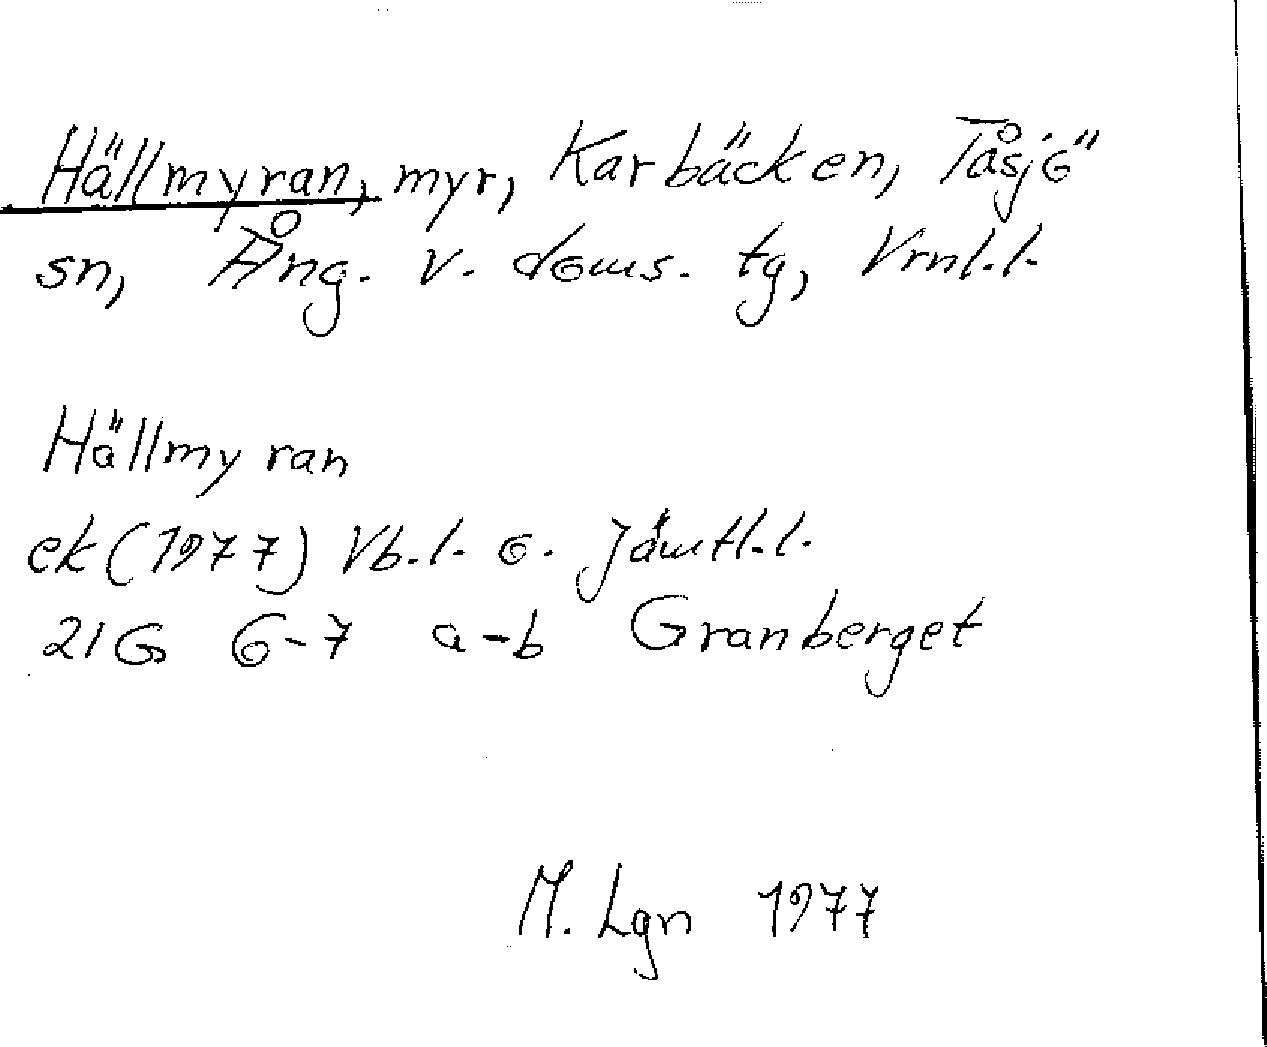 Hällmyran, myr, Karbäcken, Tåsjö
sn, Ång. v. doms. tg, Vrnl.l.
Hällmyran
ek (1977) Vb.l. o. Jämtl.l.
21G 6-7 a-b Granberget
M. Lgn 1977